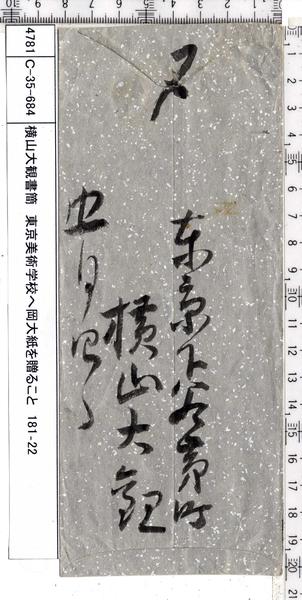 〆
東京下谷茅町
横山大観
五月四日
4781 C-35-684 横山大観書簡 東京美術学校へ岡大紙を贈ること 181-22